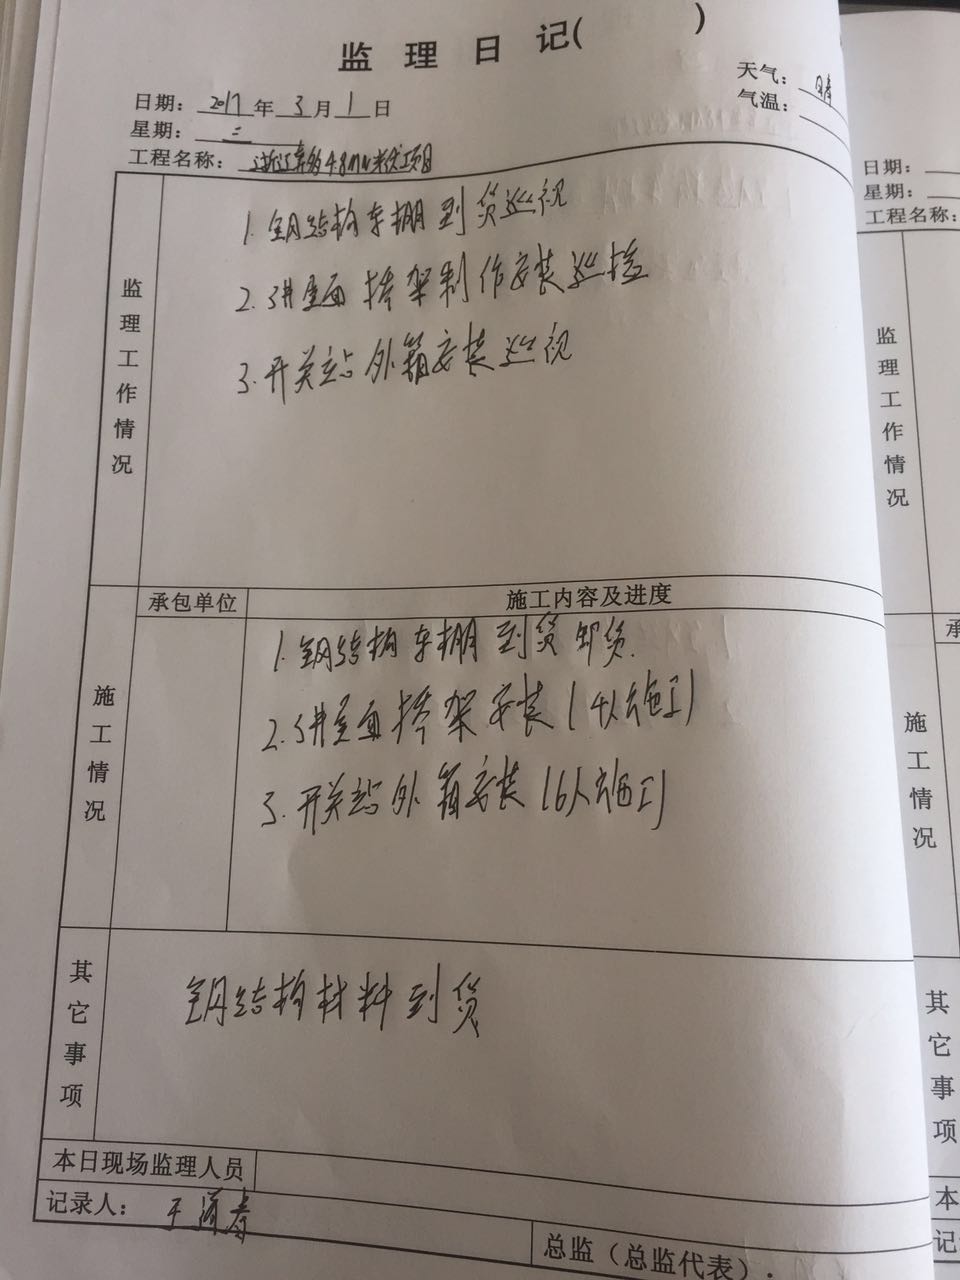 监 理 日 记( )
日期: 2017 年 3 月 1 日
天气: 晴
星期: 三
气温:
工程名称: 浙江 4.8MW 光伏项目
监理工作情况
1. 钢结构车棚到货巡视
2. 屋面桥架制作安装巡检
3. 开关站外箱安装巡视
承包单位
施工内容及进度
施工情况
1. 钢结构车棚到货卸货.
2. 屋面桥架安装(4人施工)
3. 开关站外箱安装(6人施工)
其它事项
钢结构材料到货
本日现场监理人员
记录人:
总监(总监代表):
日期:
星期:
工程名称:
监理工作情况
承
施工情况
其它事项
本
记